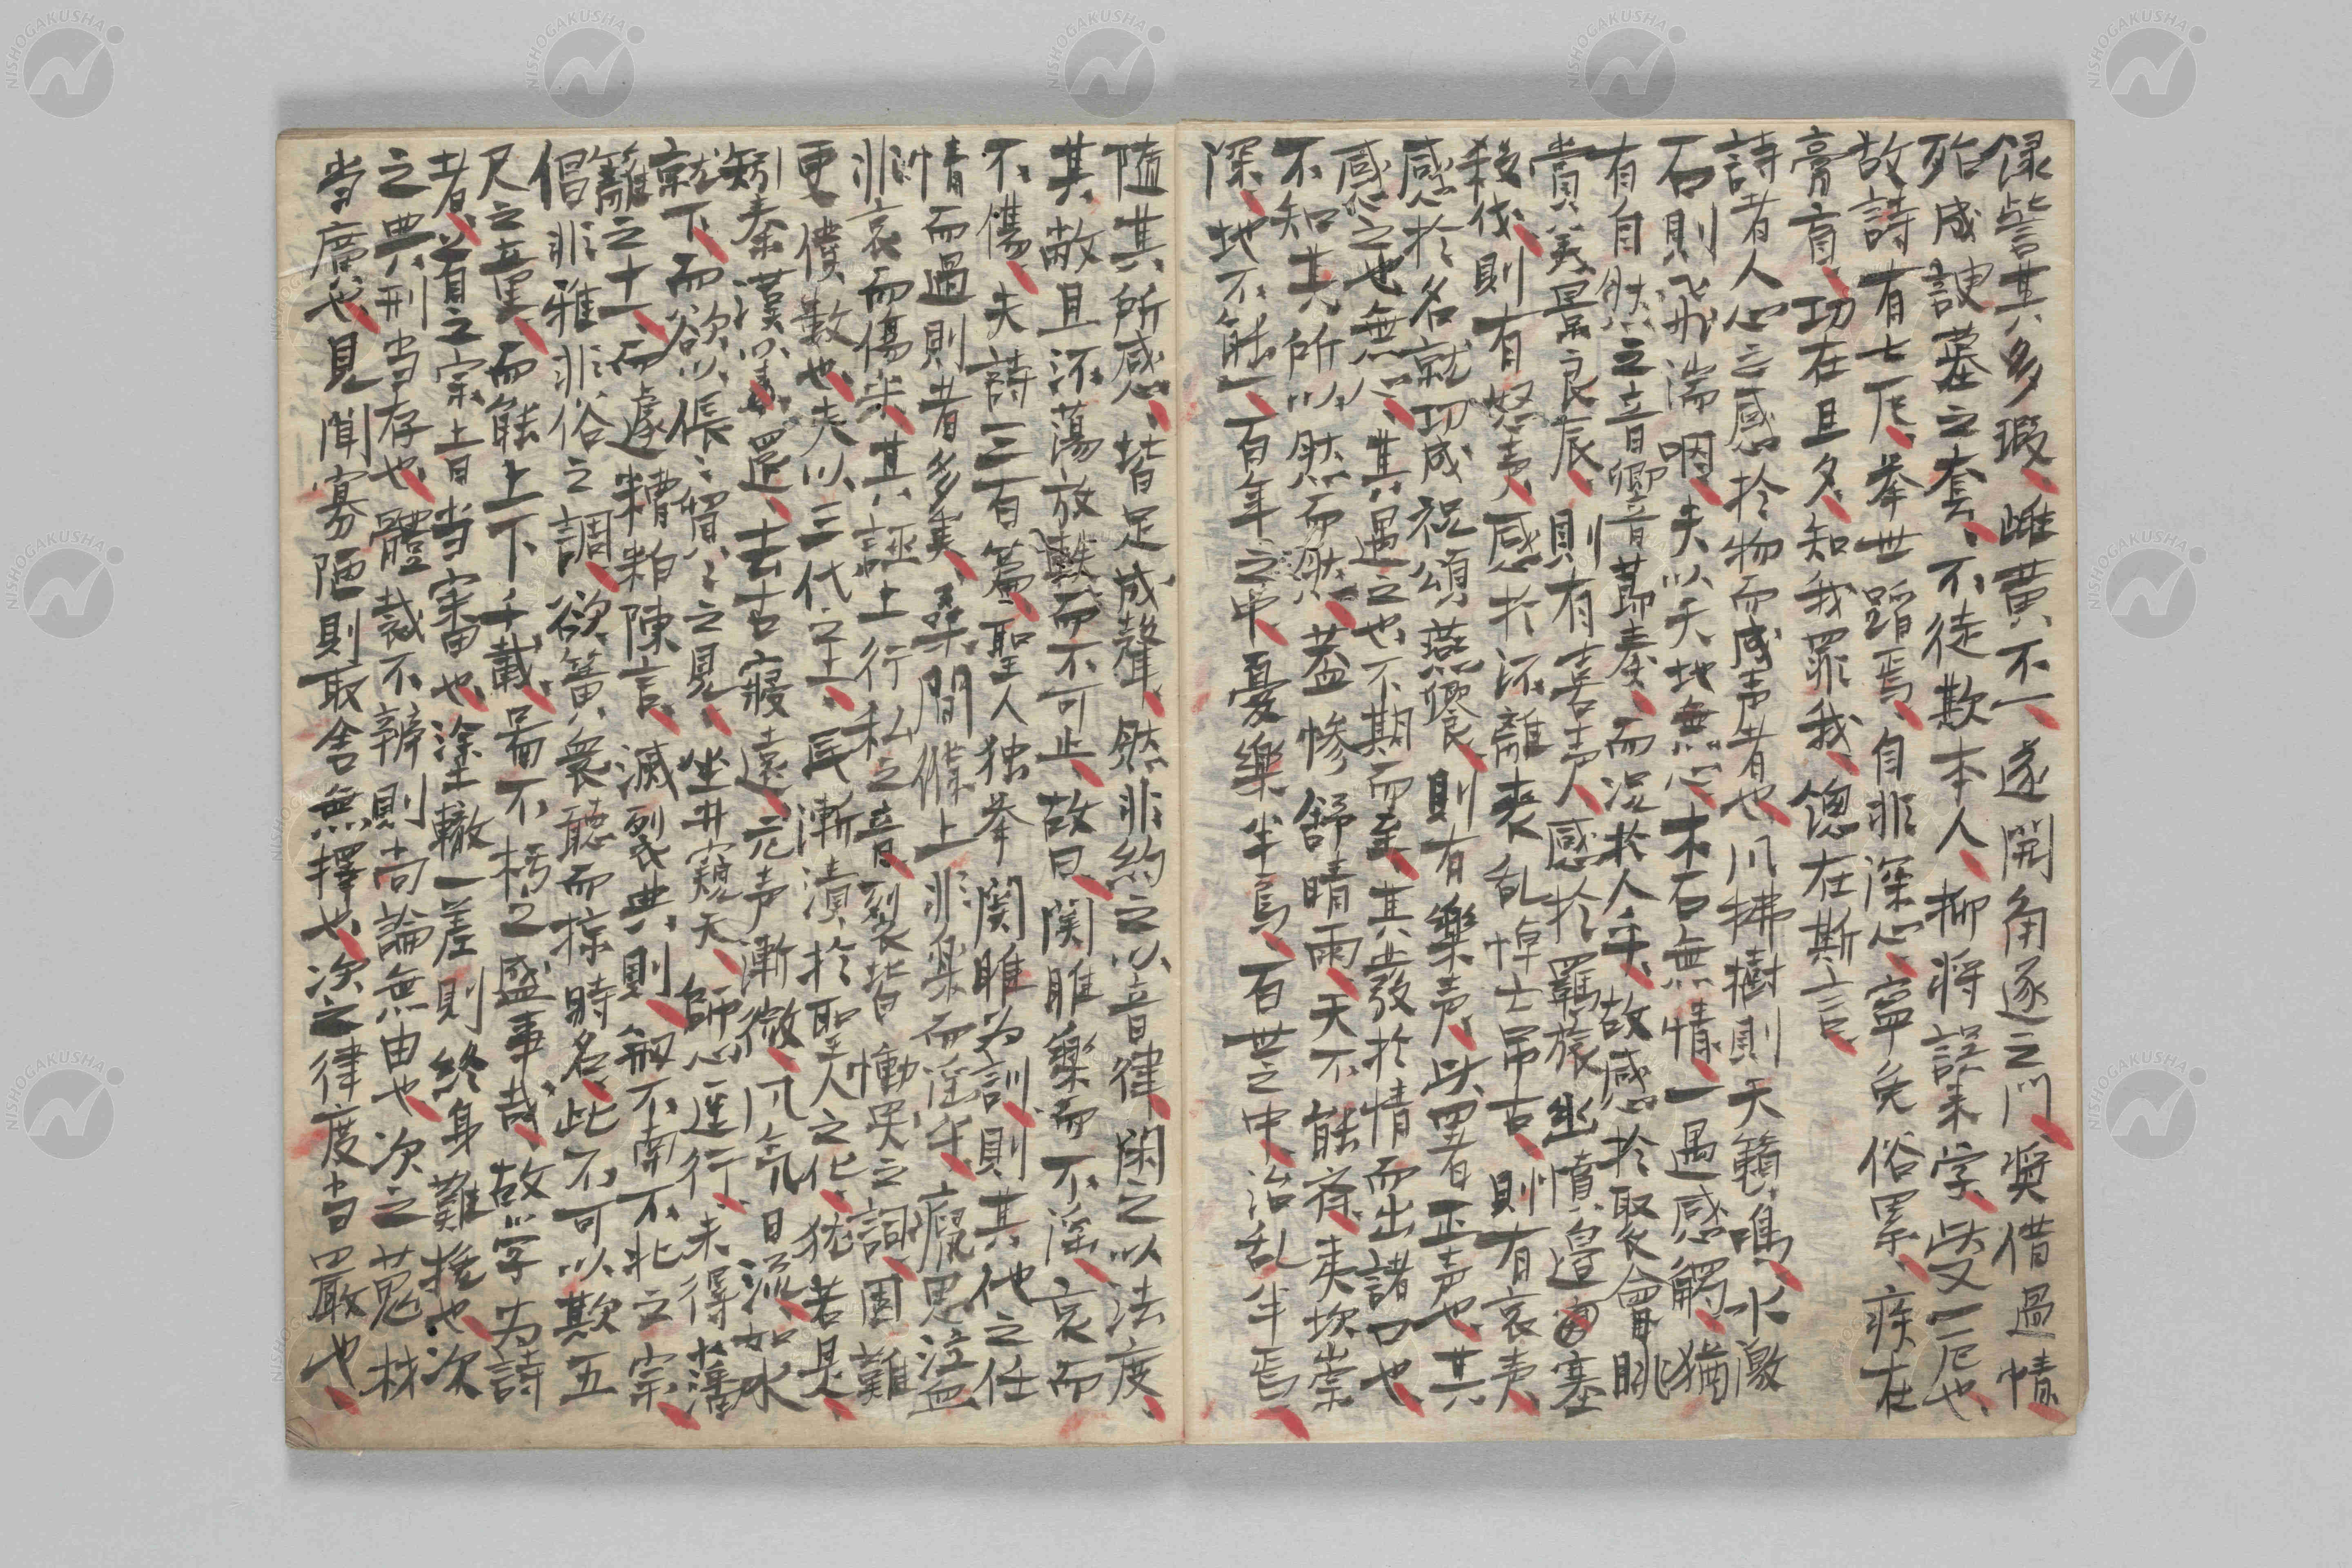 録訾其多瑕雌黄不一遂開角逐之門奨借過情
殆成諛墓之套不徒欺本人抑将誤末学此又一厄也
故詩有七厄挙世蹈焉自非深心寧免俗累疾在
膏肓功在且夕知我罪我総在斯言
詩者人心之感於物而成声者也風拂樹則天籟鳴水激
石則飛湍咽夫以天地無心木石無情一遇感觸猶
有自然之音響節奏而況於人乎故感於聚會眺
賞美景良辰則有喜声感於羈旅幽憤邉塞
殺伐則有怒声感於流離喪乱悼亡吊古則有哀声
感於名就功成祝頌燕饗則有樂声此四者正声也其
感之也無心其遇之也不期而至其發於情而出諸口也
不知其所以然而然蓋惨舒晴雨天不能齊夷坎崇
深地不能一百年之中憂樂半焉百世之中治乱半焉
隨其所感皆足成聲然非約之以音律閑之以法度
其敝且流蕩放軼而不可止故曰関雎樂而不淫哀而
不傷夫詩三百篇聖人独挙関雎為訓則其他之任
情而過則者多矣桑間濮上非樂而淫乎癙思泣血
非哀而傷乎其誣上行私之音裂眥慟哭之詞固難
更僕数也夫以三代之上民漸漬於聖人之化猶若是
矧秦漢以還去古寖遠元声漸微風気日流如水
就下而欲以倀倀貿貿之見坐井窺天師心逕行未得藩
籬之十一而遽糟粕陳言滅裂典則無不南不北之宗
倡非雅非俗之調欲簧衆聽而掠時名此不可以欺五
尺之童而能上下千載為不朽之盛事哉故学為詩
者首之宗旨当審也塗轍一差則終身難挽也次
之典刑当存也體裁不辨則尚論無由也次之蒐材
当廣也見聞寡陋則取舎無擇也次之律度当嚴也